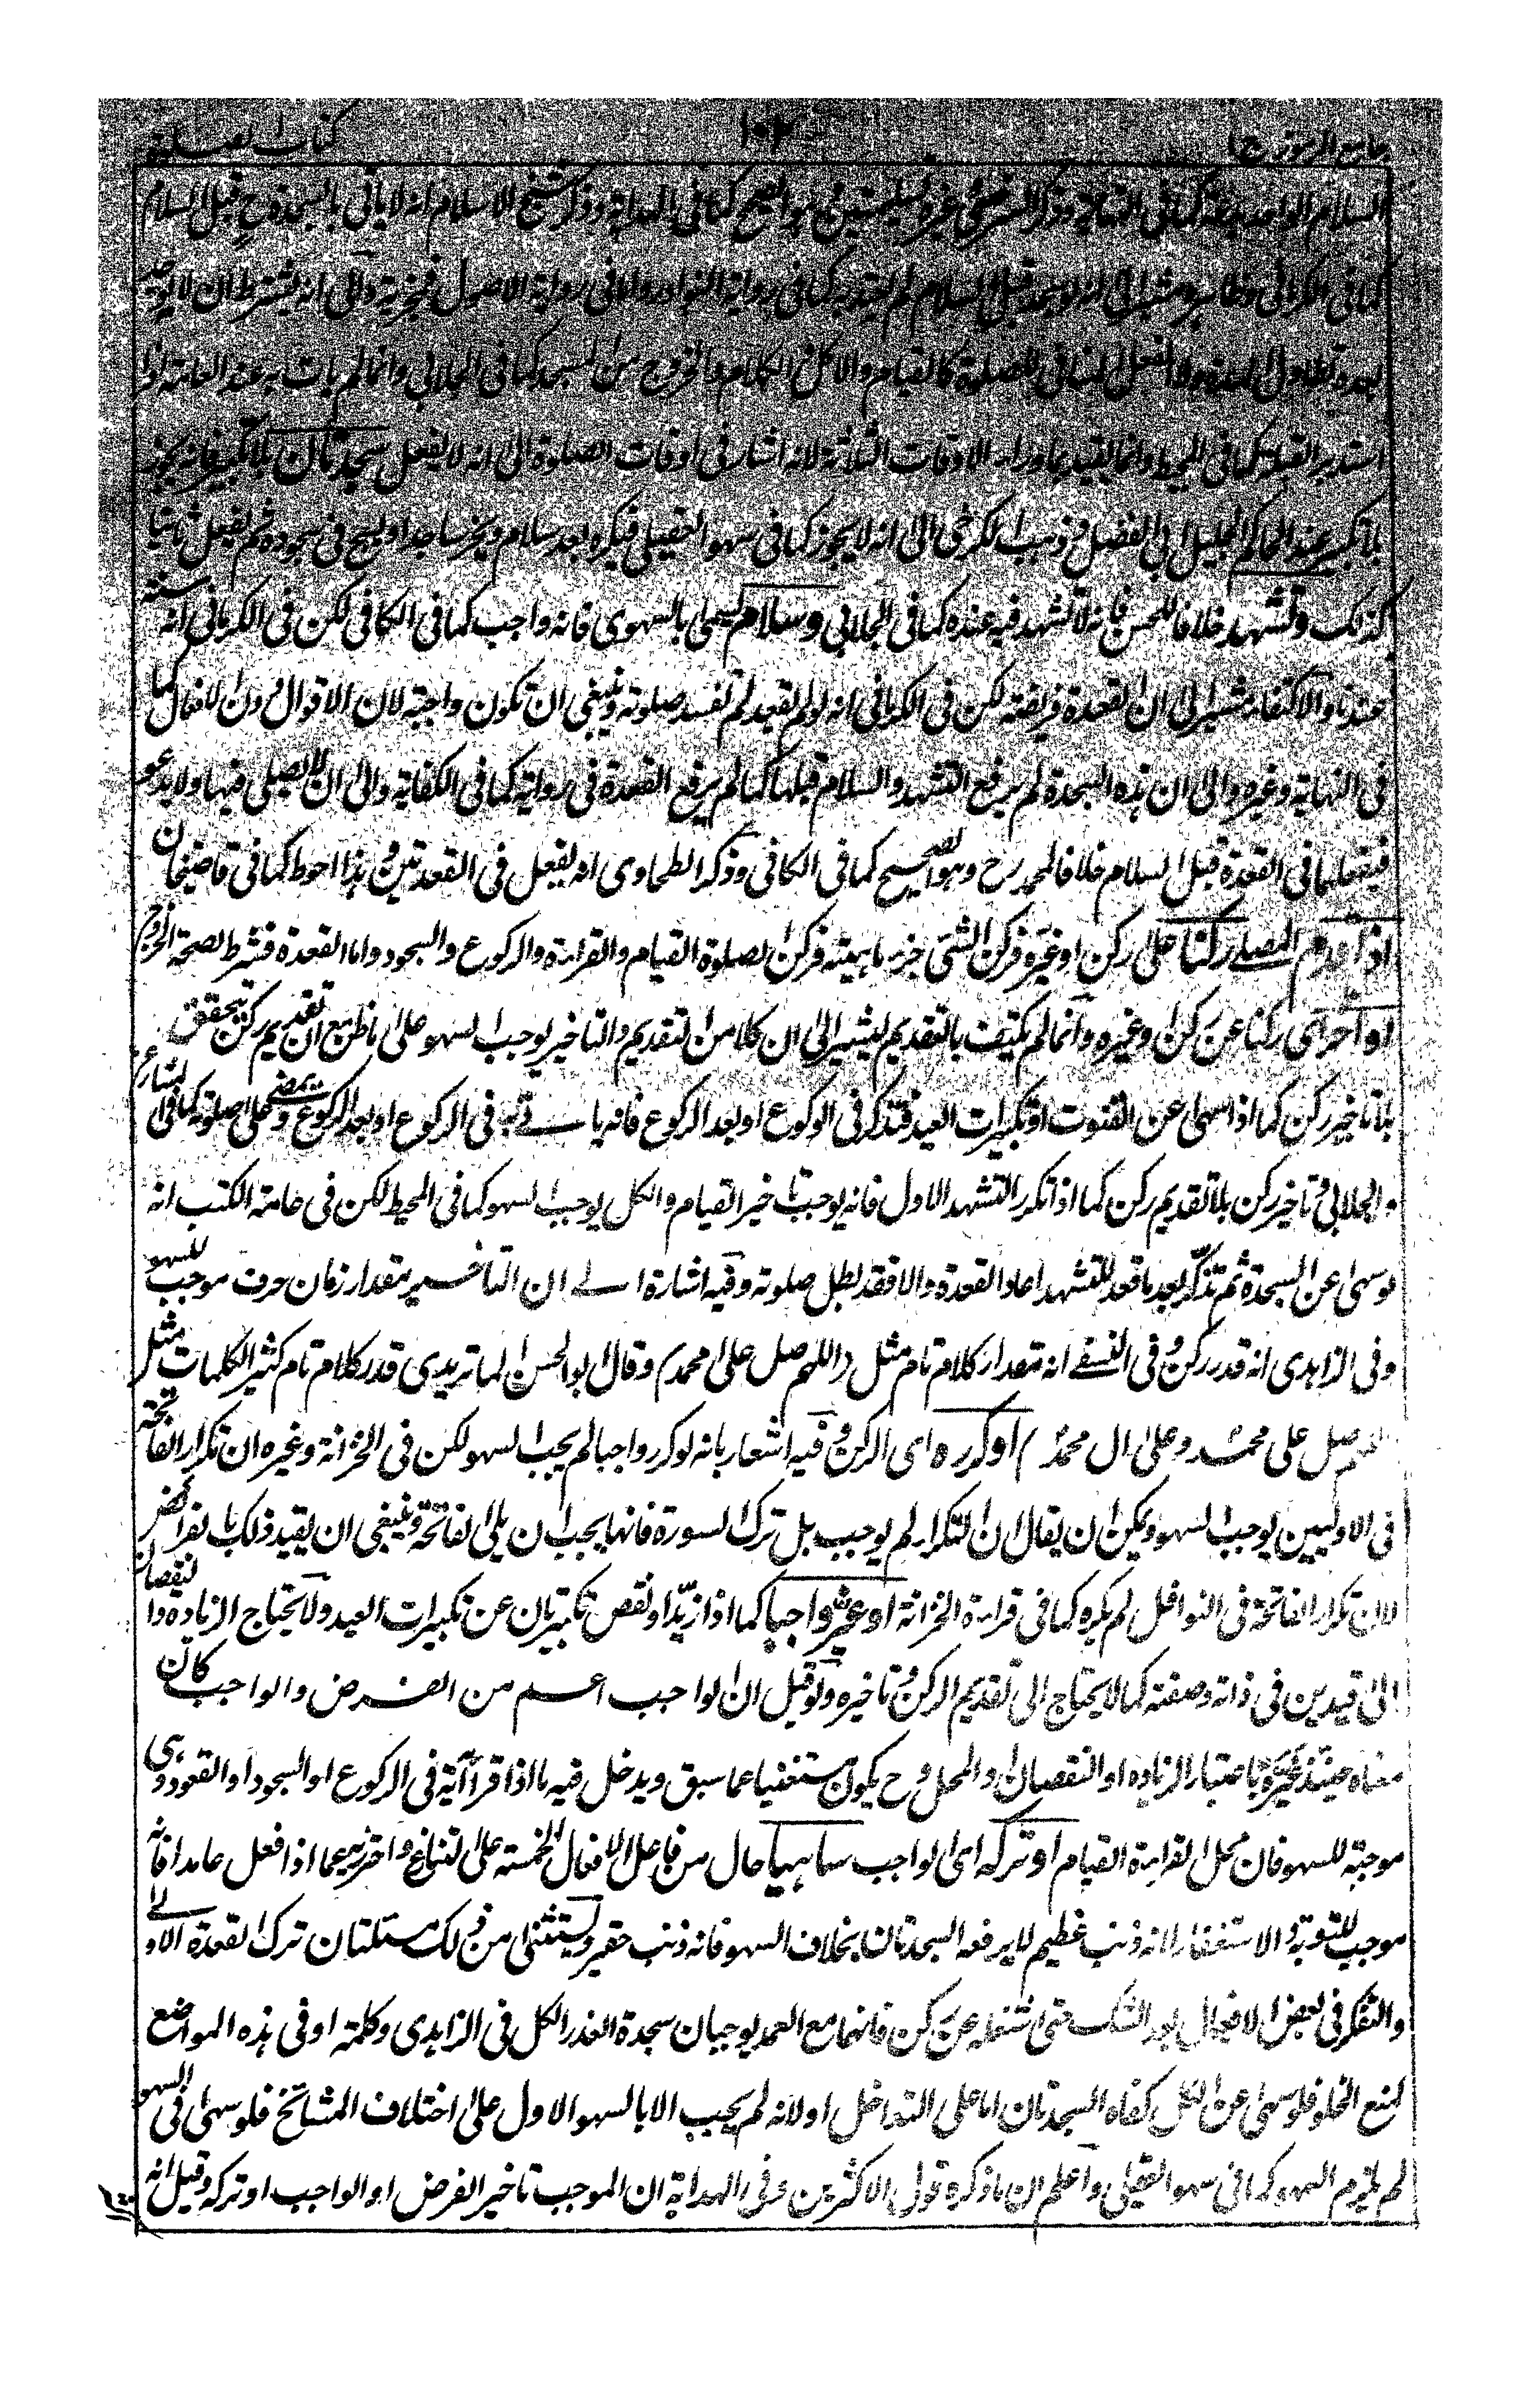 جامع الرموز ج ا ١٠٢ كتاب الصلوة
السلام الواحد كما فى النهاية وذكر السرخسى وغيره تسليمتين هو الصحيح كما فى الهداية وذكر شيخ الاسلام انه لا ياتى بالسجدة ح قبل السلام
كما فى الكرمانى مشير الى انه لو سجد قبل السلام لم يعتد به كما فى رواية النوادر واما فى رواية الاصول فيجزيه والى انه يشترط ان لا يوجد
بعده تطاول المدة ولا الفعل المنافى للصلوة كالقيام والاكل والكلام والخروج من المسجد كما فى الجلابى وانما لم يات به عند العامة اذا
استدبر القبلة كما فى المحيط وانما يقيد بما وراء الاوقات الثلثة لانه اشار فى اوقات الصلوة الى انه لا يفعل سجدتان بلا تكبير فانه يجوز
بلا تكبير عند الحاكم الجليل ابى الفضل وذهب الكرخى الى انه لا يجوز كما فى سهو الحقيلى فيكبر بعد سلام ويخر ساجدا ويسبح فى سجوده ثم يفعل ثانيا
كذلك وتشهد خلافا للحسن فانه لا تشهد فيه عنده كما فى الجلابى وسلام يسمى بالسهوى فانه واجب كما فى الكافى لكن فى الكرمانى انه سنة
عندنا والاكتفاء مشير الى ان القعدة فريضة لكن فى الكرمانى انه لو لم يقعد لم تفسد صلوته وينبغى ان تكون واجبة لان الاقوال دون الافعال كما
فى النهاية وغيره والى ان هذه السجدة لم يرفع التشهد والسلام قبلها كما لم يرفع القعدة فى رواية كما فى الكفاية والى ان لا يصلى فيها ولا يدعو
فيفعلهما فى القعدة قبل السلام خلافا لمحمد رح وهو الصحيح كما فى الكافى وذكر الطحاوى انه يفعل فى القعدتين وهذا احوط كما فى قاضيخان
اذا قدم المصلى ركنا على ركن او غيره فركن الشئ جزء ماهيته فركن الصلوة القيام والقراءة والركوع والسجود واما القعدة فشرط لصحة الخروج
او اخر اى ركنا عن ركن او غيره وانما لم يكتف بالتقديم ليشير الى ان كلا من التقديم والتاخير يوجب السهو على ما ظن مع ان تقديم ركن يتحقق
بلا تاخير ركن كما اذا سهى عن القنوت او تكبيرات العيد فتذكر فى الركوع او بعد الركوع فانه ياتى به فى الركوع او بعد الركوع ويمضى على صلوته كما فى المشارع
والجلابى وتاخير ركن بلا تقديم ركن كما اذا تكرر التشهد الاول فانه يوجب تاخير القيام والكل يوجب السهو كما فى المحيط لكن فى عامة الكتب انه
لو سهى عن السجدة ثم تذكر بعد ما قعد للتشهد اعاد القعدة والا فقد بطل صلوته وفيه اشارة الى ان التاخير مقدار زمان حرف موجب للسهو
وفى الزاهدى انه قدر ركن وفى النسفى انه مقدار كلام تام مثل (اللهم صل على محمد) وقال ابو الحسن الماتريدى قدر كلام تام كثير الكلمات مثل
اللهم صل على محمد وعلى ال محمد) او كرره اى الركن وفيه اشعار بانه لو كرر واجبا لم يجب السهو لكن فى الخزانة وغيره ان تكرار الفاتحة
فى الاوليين يوجب السهو ويمكن ان يقال ان التكرار لم يوجب بل ترك السورة فانها يجب ان يلى الفاتحة وينبغى ان يقيد ذلك بالفرائض
لان تكرار الفاتحة فى النوافل لم يكره كما فى قراءة الخزانة او غير واجبا كما اذا زيد او نقص تكبيرتان عن تكبيرات العيد ولا يحتاج الزيادة والنقصان
الى قيدين فى ذاته وصفته كما لا يحتاج الى تقديم الركن وتاخيره ولو قيل ان الواجب اعم من الفرض والواجب كان
معناه حينئذ غيره باعتبار الزيادة او النقصان او المحل وح يكون مستغنيا عما سبق ويدخل فيه ما اذا قرأ آية فى الركوع او السجود او القعود وهى
موجبة للسهو فان محل القراءة القيام او تركه اى الواجب ساهيا حال من فاعل الافعال الخمسة على التنازع واحترز به عما اذا فعل عامدا فانه
موجب للتوبة والاستغفار لانه ذنب عظيم لا يرفعه السجدتان بخلاف السهو فانه ذنب حقير ويستثنى من ذلك مسئلتان ترك القعدة الاولى
والتفكر فى بعض الافعال بعد الشك حتى شغله عن ركن فانهما مع العمد يوجبان سجدة العذر الكل فى الزاهدى وكلمة او فى هذه المواضع
لمنع الخلو فلو سهى عن الكل كفاه السجدتان اما على التداخل او لانه لم يجب الا بالسهو الاول على اختلاف المشائخ فلو سهى فى السهو
لم يلزم السهو كما فى سهو الحقيلى واعلم ان ما ذكره قول الاكثرين وفى الهداية ان الموجب تاخير الفرض او الواجب او تركه وقيل انه